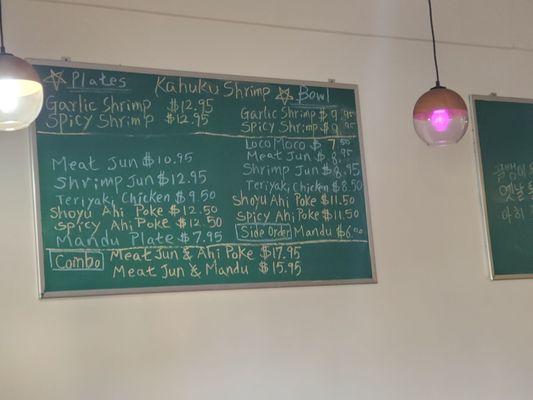 Plates Kahuku Shrimp Bowl
Garlic Shrimp $12.95
Spicy Shrimp $12.95
Garlic Shrimp $9.95
Spicy Shrimp $9.95
Meat Jun $10.95
Shrimp Jun $12.95
Teriyaki Chicken $9.50
Shoyu Ahi Poke $12.50
Spicy Ahi Poke $12.50
Mandu Plate $7.95
Loco Moco $7.50
Meat Jun $8.95
Shrimp Jun $8.95
Teriyaki Chicken $8.50
Shoyu Ahi Poke $11.50
Spicy Ahi Poke $11.50
Side Order Mandu $6.00
Combo Meat Jun & Ahi Poke $17.95
Meat Jun & Mandu $15.95
옛날